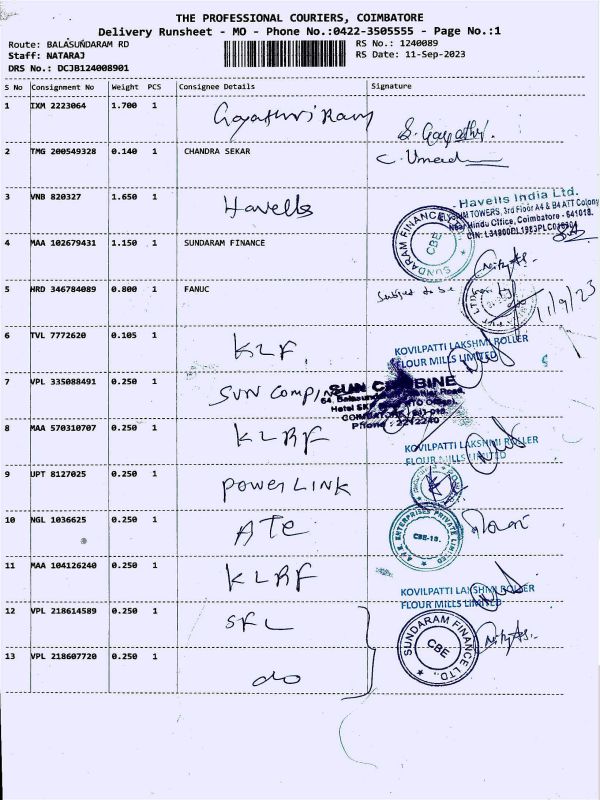 THE PROFESSIONAL COURIERS, COIMBATORE
Delivery Runsheet - MO - Phone No.:0422-3505555 - Page No.:1
Route: BALASUNDARAM RD
RS No.: 1240089
Staff: NATARAJ
RS Date: 11-Sep-2023
DRS No.: DCJB124008901
S No Consignment No Weight PCS Consignee Details Signature
1 IXM 2223064 1.700 1 Gayathri Ram
S. Gayathri.
2 TMG 200549328 0.140 1 CHANDRA SEKAR
3 VNB 820327 1.650 1 Havells
Havells India Ltd.
TOWERS, 3rd Floor A4 & B4 ATT Colony
Near Hindu Office, Coimbatore - 641018.
4 MAA 102679431 1.150 1 SUNDARAM FINANCE
SUNDARAM FINANCE
CBE
5 HRD 346784089 0.800 1 FANUC
Subject to
11/9/23
6 TVL 7772620 0.105 1 KLF.
KOVILPATTI LAKSHMI ROLLER
FLOUR MILLS LIMITED
7 VPL 335088491 0.250 1 SUN
SUN
Phone : 2212240
8 MAA 570310707 0.250 1 KLRF
KOVILPATTI LAKSHMI ROLLER
FLOUR MILLS LIMITED
9 UPT 8127025 0.250 1 POWER LINK
10 NGL 1036625 0.250 1 ATE
ENTERPRISES PRIVATE LIMITED
CBE-18.
11 MAA 104126240 0.250 1 KLRF
KOVILPATTI LAKSHMI ROLLER
FLOUR MILLS LIMITED
12 VPL 218614589 0.250 1 SFL
SUNDARAM FINANCE LTD.
CBE
13 VPL 218607720 0.250 1 do